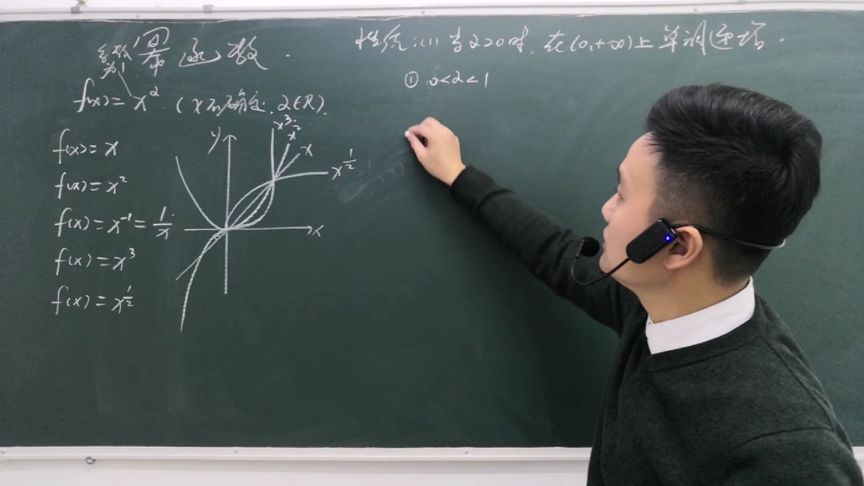 幂函数.
系数为1
f(x)=x^α. (x不确定. α∈R).
f(x)=x
f(x)=x²
f(x)=x⁻¹=1/x
f(x)=x³
f(x)=x^(1/2)
y
x³
x²
x
x^(1/2)
x
性质:(1) 当α>0时, 在(0,+∞)上单调递增.
① 0<α<1